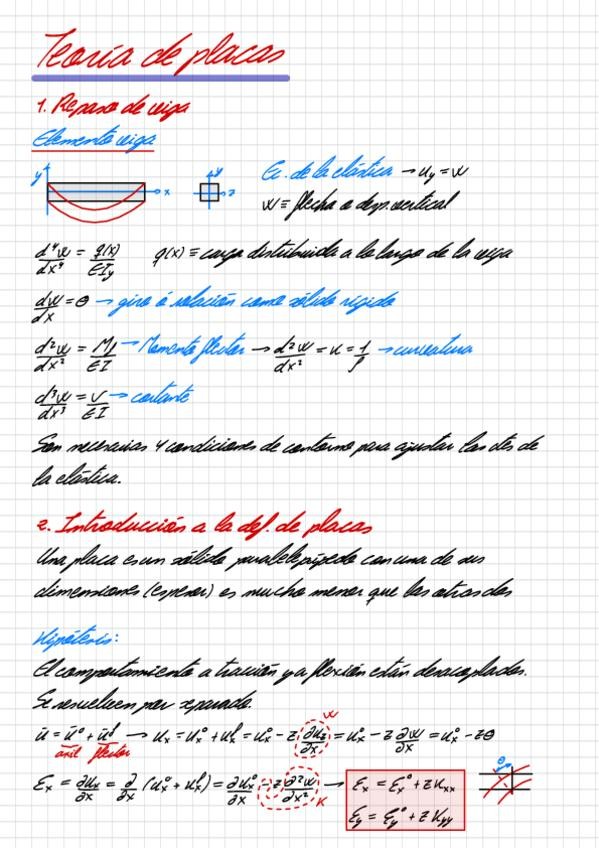 Teoría de placas
1. Repaso de viga
Elemento viga
y x y z
Ec. de la elástica → u_y = w
w ≡ flecha o desp. vertical
d⁴w/dx⁴ = q(x)/EI_y q(x) ≡ carga distribuida a lo largo de la viga
dw/dx = θ → giro ó rotación como sólido rígido
d²w/dx² = M_f/EI → Momento flector → d²w/dx² = κ = 1/ρ → curvatura
d³w/dx³ = V/EI → cortante
Son necesarias 4 condiciones de contorno para ajustar las ctes de
la elástica.
2. Introducción a la def. de placas
Una placa es un sólido paralelepípedo con una de sus
dimensiones (espesor) es mucho menor que las otras dos
Hipótesis:
El comportamiento a tracción y a flexión están desacoplados.
Se resuelven por separado.
ū = ū° + ūᶠ → u_x = u_x° + u_xᶠ = u_x° - z ∂u_z/∂x = u_x° - z ∂w/∂x = u_x° - zθ
w
axil flector
θ
ε_x = ∂u_x/∂x = ∂/∂x (u_x° + u_xᶠ) = ∂u_x°/∂x - z ∂²w/∂x² → ε_x = ε_x° + z κ_xx
κ
ε_y = ε_y° + z κ_yy